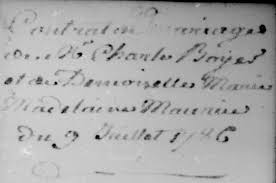 Contrat de Mariage
de Sr Charle Boyer
et de Demoiselle Marie
Madelaine Maunier
du 9 Juillet 1786